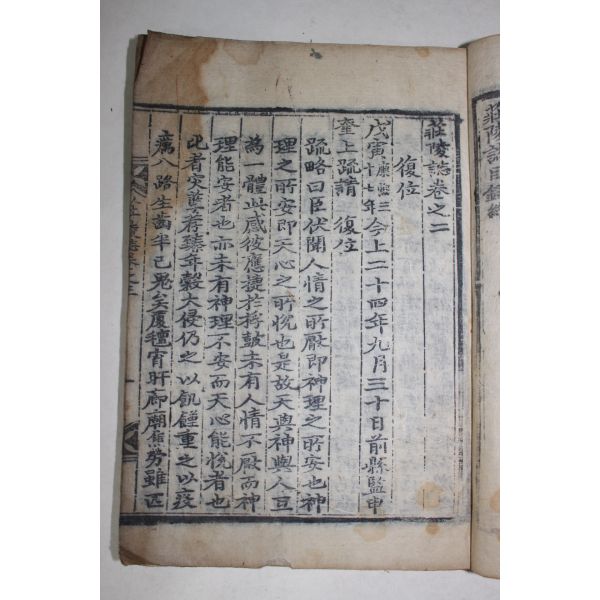 莊陵誌卷之二
復位
戊寅康熙三十七年今上二十四年九月三十日前縣監申
奎上疏請 復位
疏略曰臣伏聞人情之所厭即神理之所安也神
理之所安即天心之所悅也是故天與神與人亘
爲一體此感彼應捷於桴鼓未有人情不厭而神
理能安者也亦未有神理不安而天心能悅者也
比者灾孽荐臻年穀大侵仍之以飢饉重之以疫
癘八路生齒半已鬼矣厦氊宵旰廊廟焦勞雖匹
莊陵誌目錄終